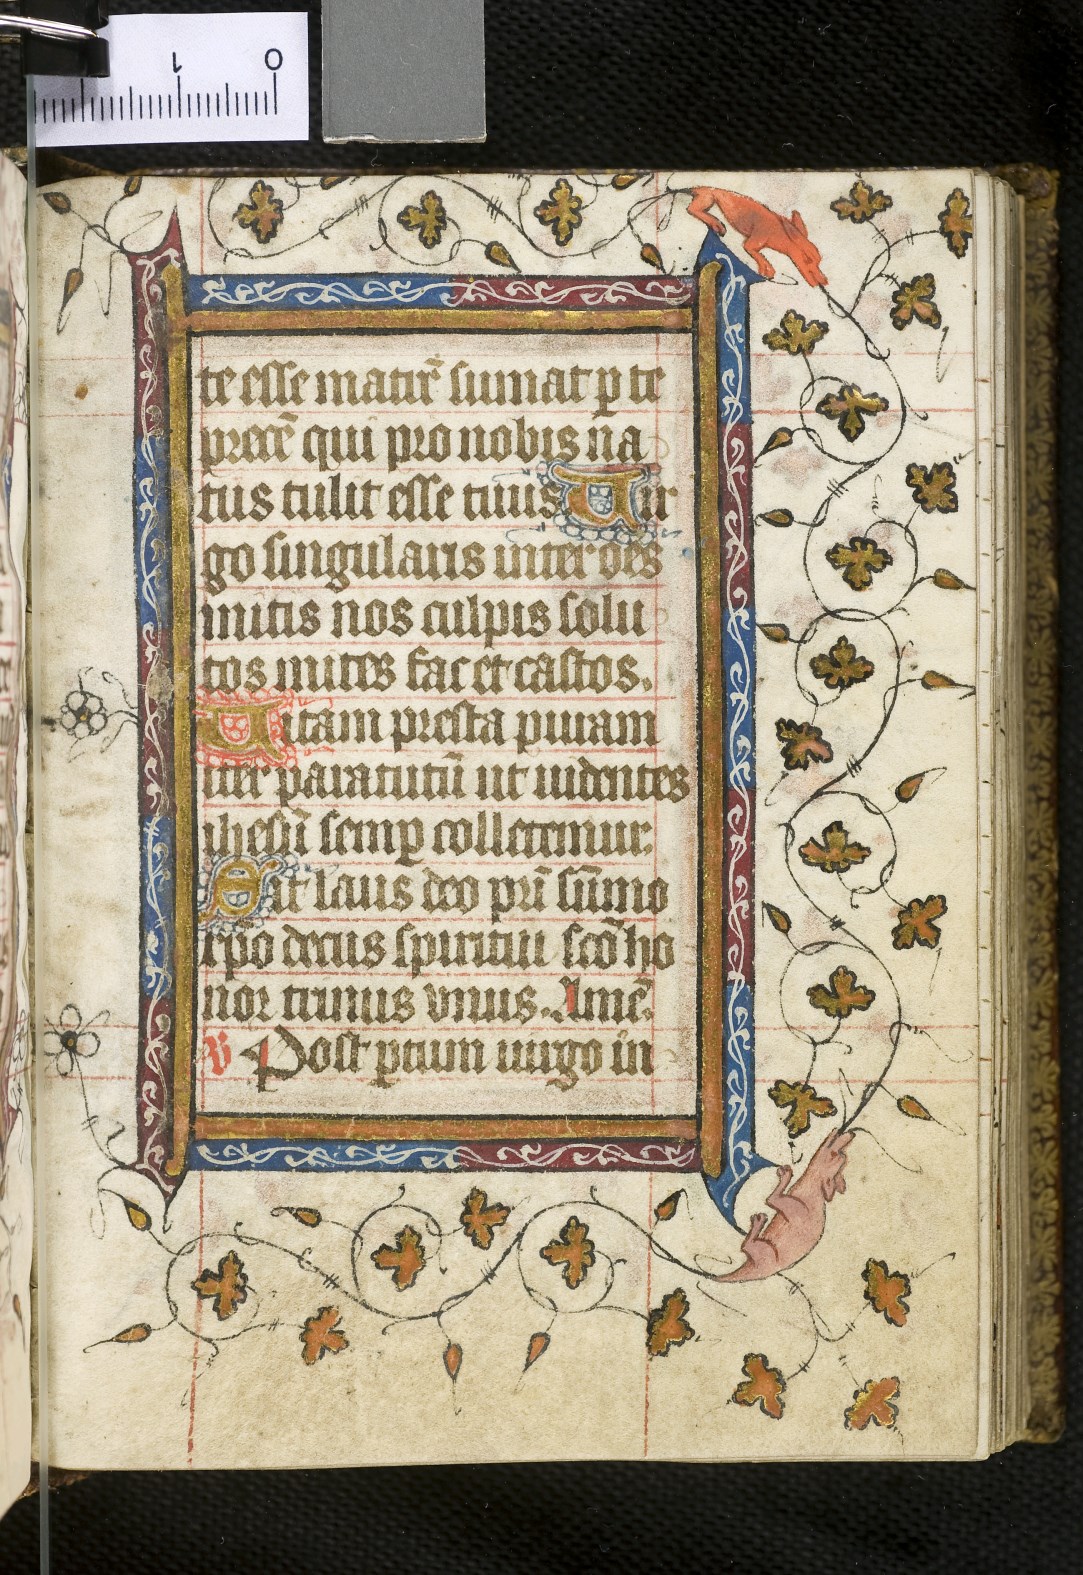 0 1
te esse matrē sumat p te
precē qui pro nobis na
tus tulit esse tuus Uir
go singularis inter oēs
mitis nos culpis solu
tos mites fac et castos.
Uitam presta puram
iter para tutū ut uidentes
ihesū semp colletemur.
Sit laus deo pr̄i sūmo
xpo decus spiritui scō ho
nor trinus vnus. Amē.
V Post ptum uirgo in